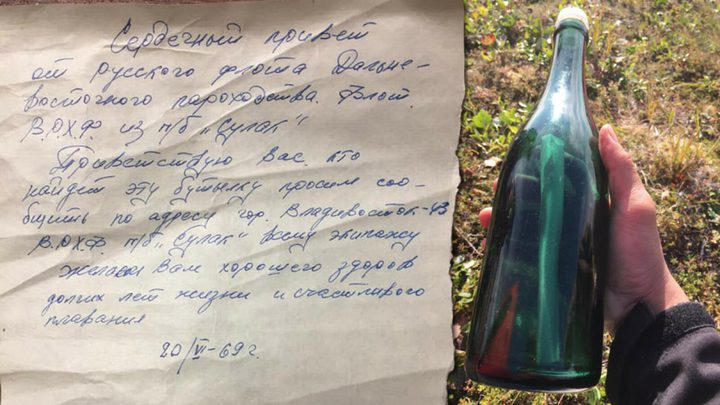 Сердечный привет
от русского флота Дальне-
восточного пароходства. Флот.
В.О.Х.Ф. из п/б „Сулак"
Приветствую Вас кто
найдет эту бутылку просим соо-
бщить по адресу гор. Владивосток-43
В.О.Х.Ф. п/б „Сулак" всему экипажу
Желаем Вам хорошего здоров
долгих лет жизни и счастливого
плавания
20/VI-69 г.